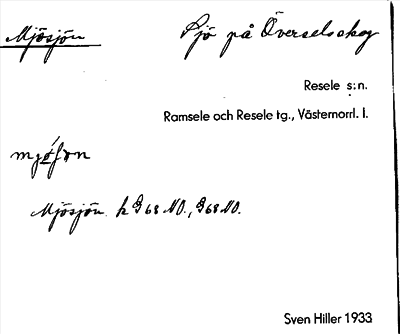 Mjösjön
Sjö på Överselsskog
Resele s:n.
Ramsele och Resele tg., Västernorrl. l.
Mjösjön k G68 NO., G68 NO.
Sven Hiller 1933